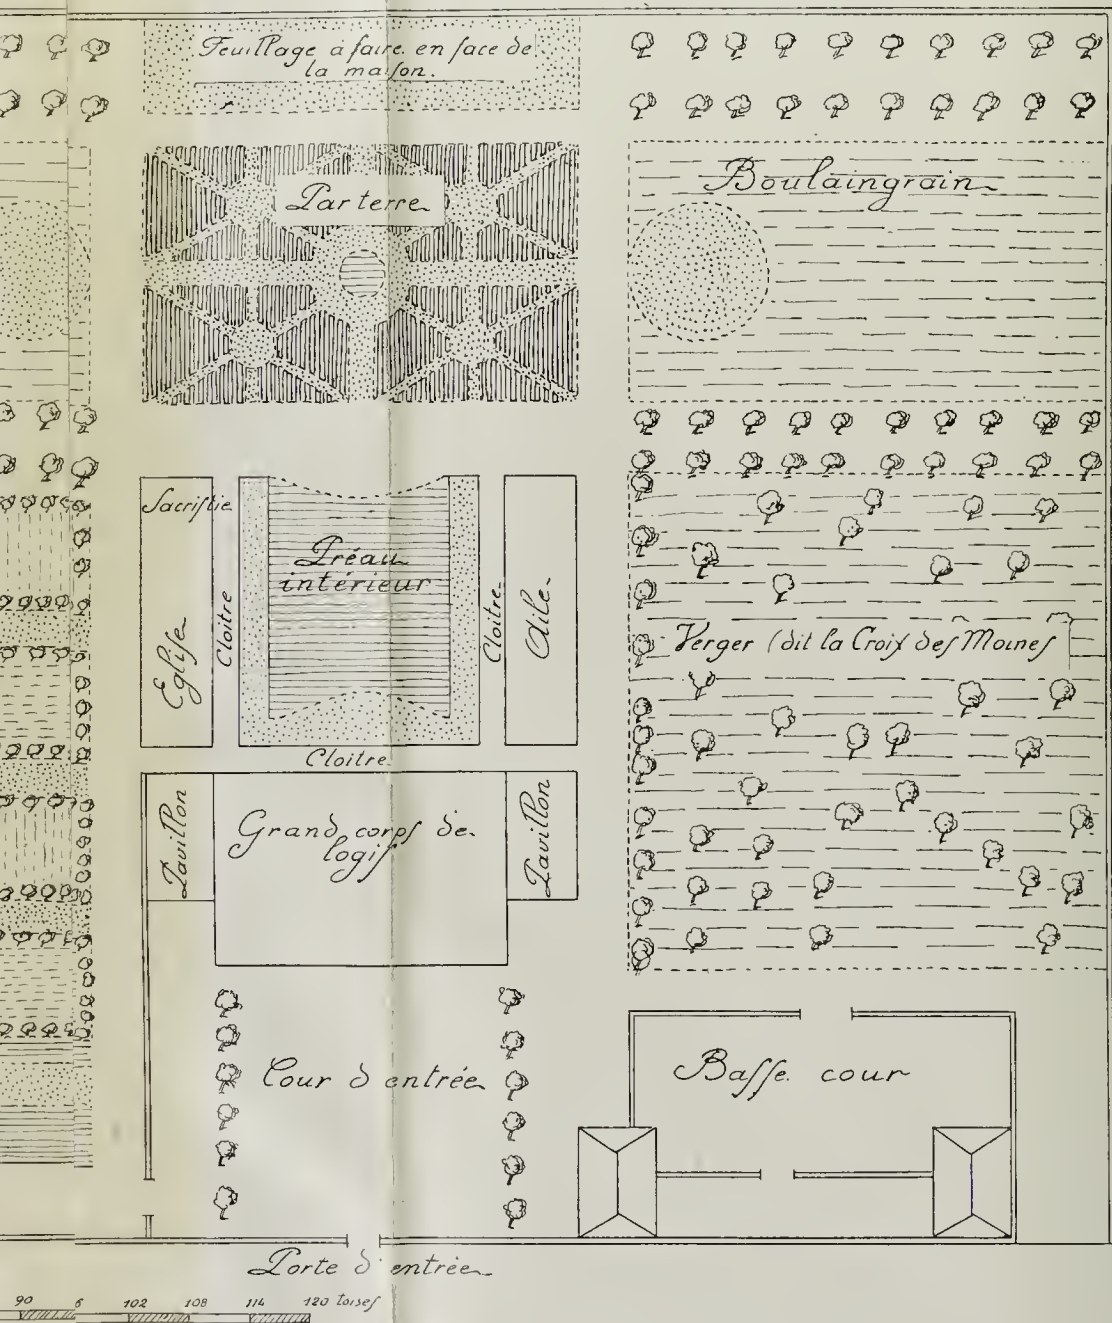 Feuillage à faire en face de
la maiſon.
Parterre
Boulaingrain
Sacriſtie
Égliſe
Cloitre
Préau
intérieur
Cloitre
Aile
Verger (dit la Croix deſ Moineſ
Cloitre
Pavillon
Grand corpſ de
logiſ
Pavillon
Cour d'entrée
Baſſe cour
Porte d'entrée
90 6 102 108 114 120 toiseſ